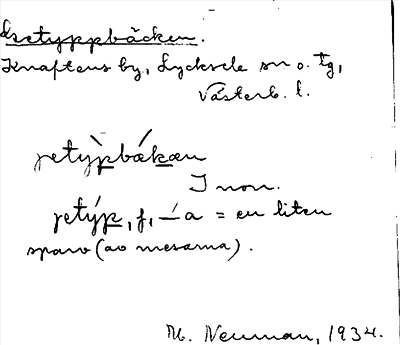 Getyppbäcken.
Knaftens by, Lycksele sn o. Tg,
Västerb. l.
jetỳpbǽkæn
I non.
jetýp, f, –́a = en liten
sparv (av mesarna).
M. Neuman, 1934.